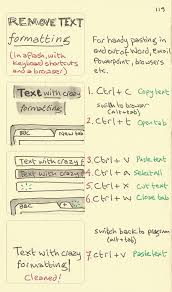 119
REMOVE TEXT
formatting
(In a flash, with
keyboard shortcuts
and a browser)
For handy pasting in
and out of Word, Email
Powerpoint, browsers
etc.
Text with crazy
formatting
1. Ctrl + C Copy text
switch to browser
(alt+tab)
2. Ctrl + t Open tab
ABC
New tab
Text with crazy f
3. Ctrl + v Paste text
Text with crazy f
4. Ctrl + a Select all
5. Ctrl + x Cut text
ABC
6. Ctrl + w Close tab
switch back to program
(alt+tab)
Text with crazy
formatting!
Cleaned!
7. Ctrl + v Paste text